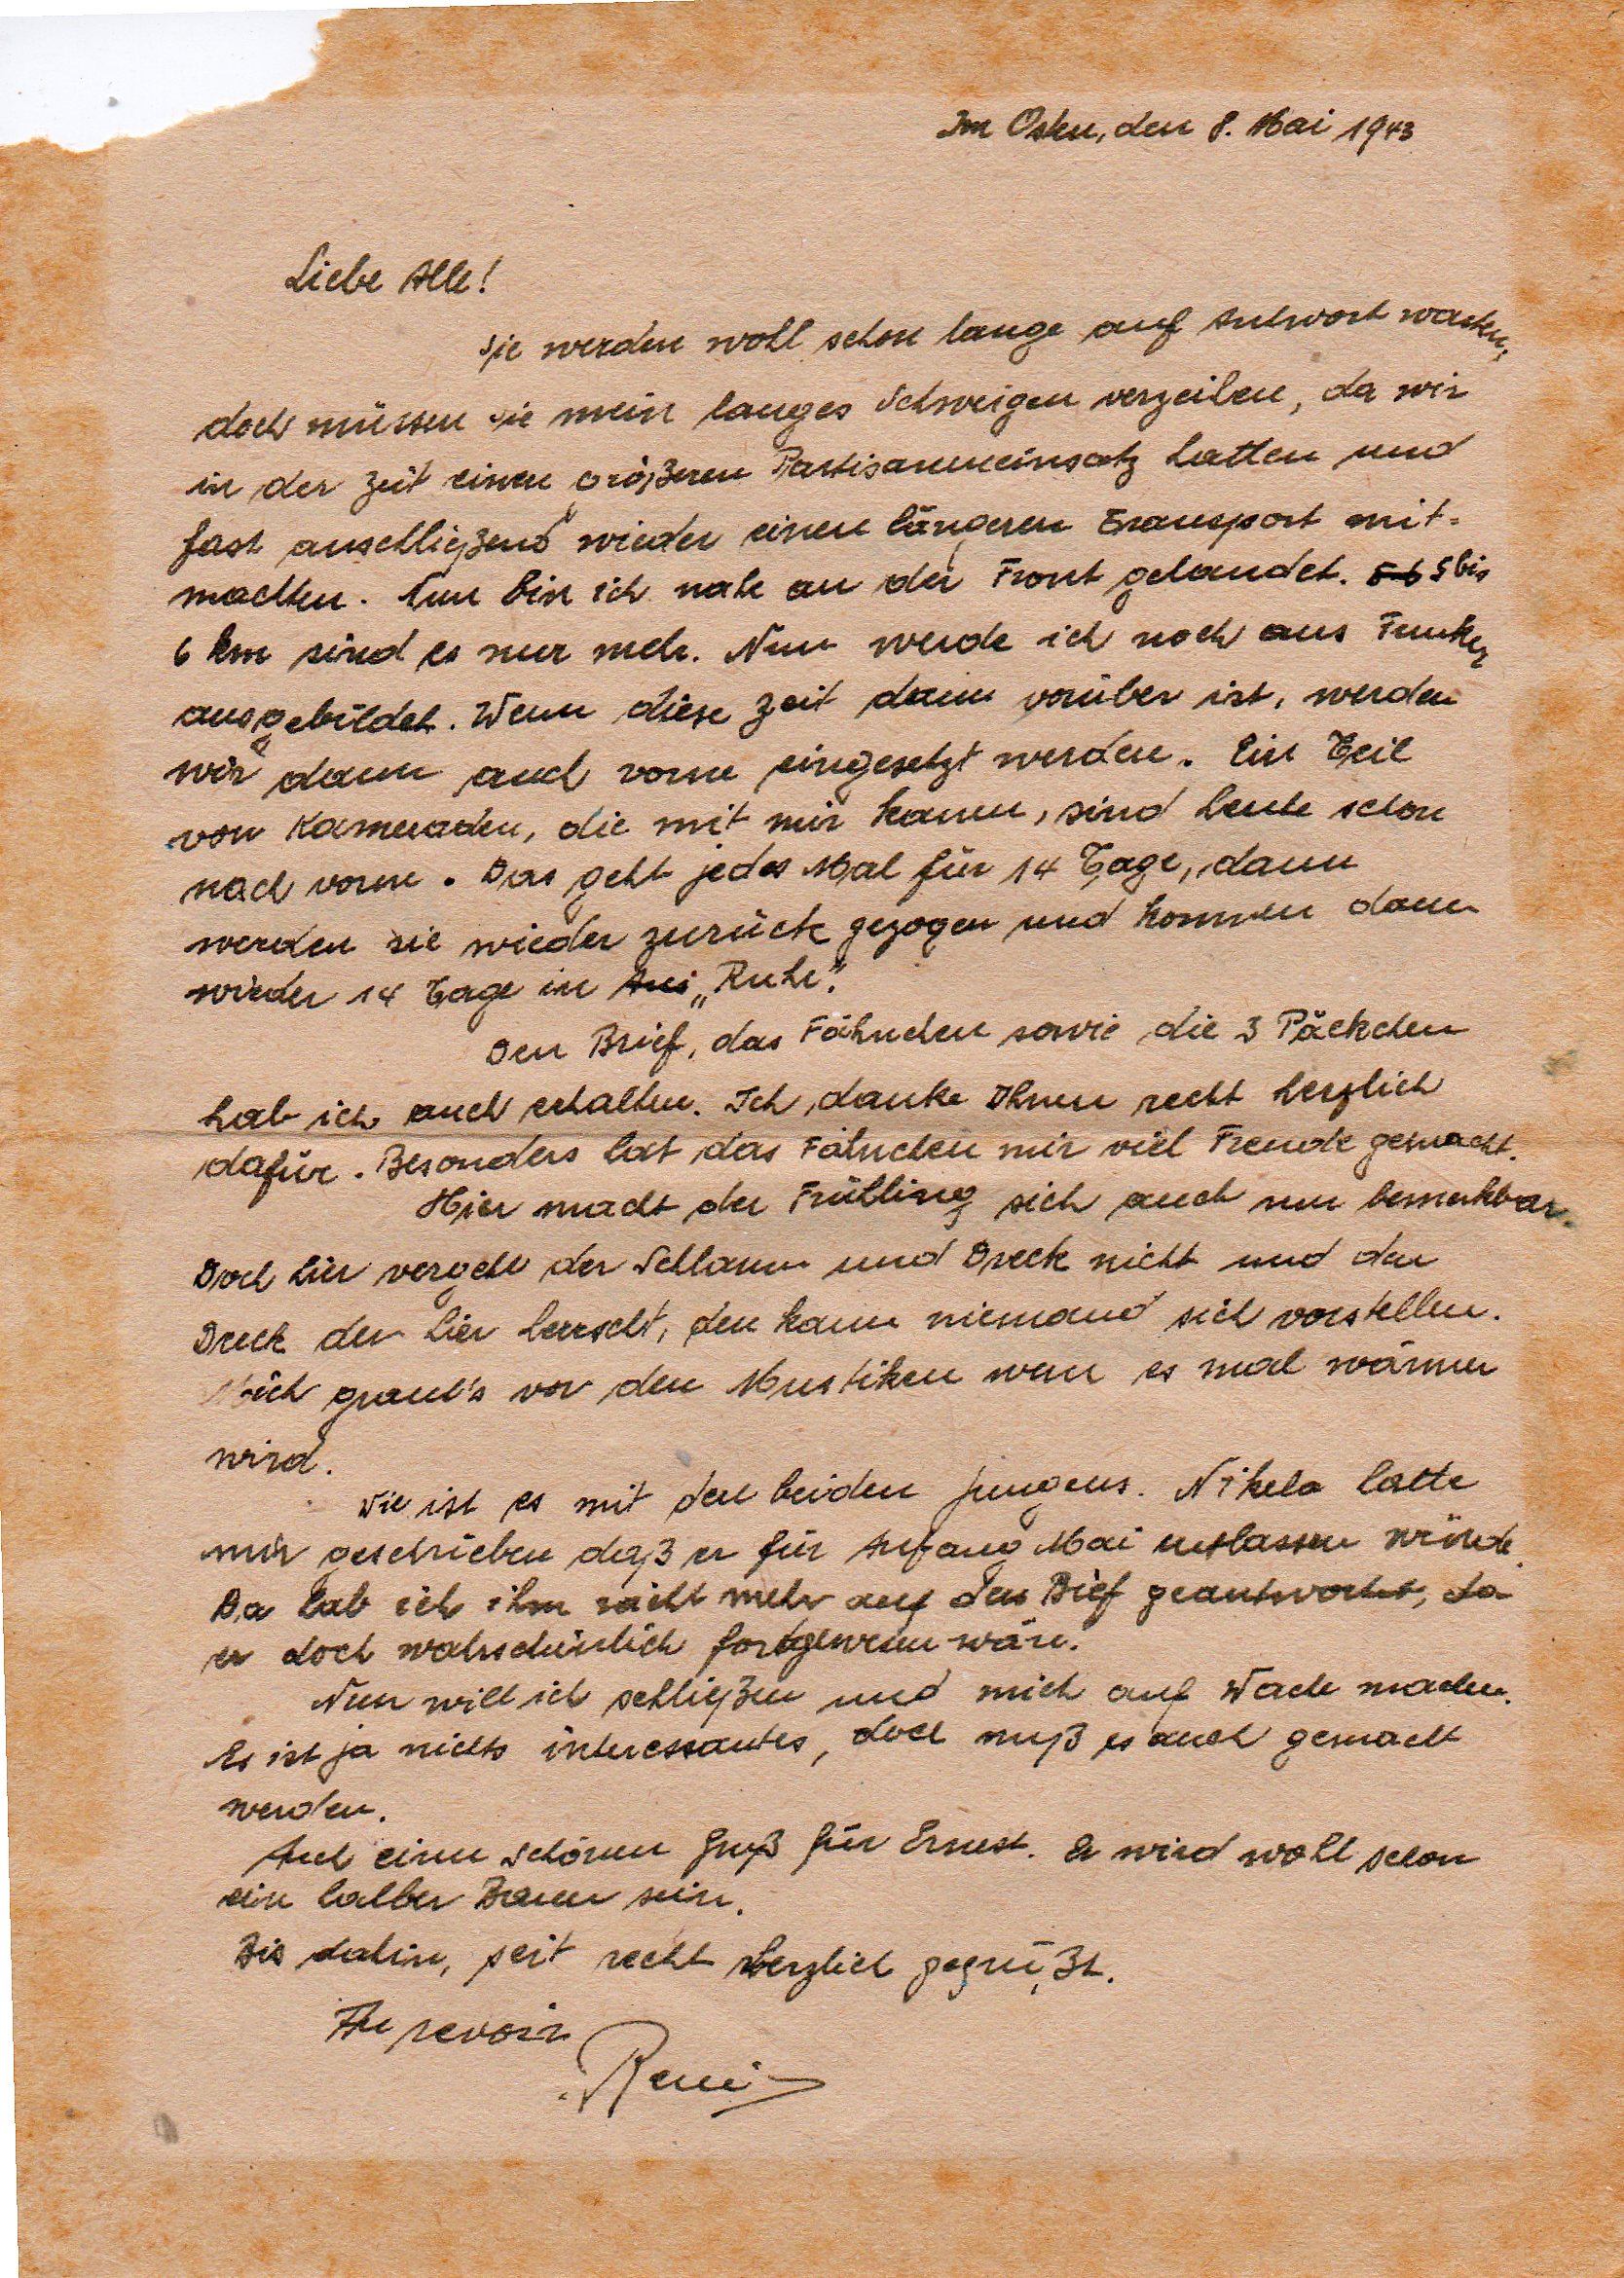 Im Osten, den 8. Mai 1943
Liebe Alle!
Sie werden wohl schon lange auf Antwort warten,
doch müssen sie mein langes Schweigen verzeihen, da wir
in der Zeit einen größeren Partisaneneinsatz hatten und
fast anschließend wieder einen längeren Transport mit-
machten. Nun bin ich nahe an der Front gelandet. 5-6 5 bis
6 km sind es nur mehr. Nun werde ich noch aus Funker
ausgebildet. Wenn diese Zeit dann vorüber ist, werden
wir dann auch vorne eingesetzt werden. Ein Teil
von Kameraden, die mit mir kamen, sind heute schon
nach vorne. Das geht jedes Mal für 14 Tage, dann
werden sie wieder zurück gezogen und kommen dann
wieder 14 Tage in „Ruhe“.
Den Brief, das Fähnchen sowie die 3 Päckchen
hab ich auch erhalten. Ich danke Ihnen recht herzlich
dafür. Besonders hat das Fähnchen mir viel Freude gemacht.
Hier macht der Frühling sich auch nun bemerkbar.
Doch hier vergeht der Schlamm und Dreck nicht und den
Dreck der hier herrscht, den kann niemand sich vorstellen.
Mich graut's vor den Mustiken wenn es mal wärmer
wird.
Wie ist es mit den beiden Jungens. Nikela hatte
mir geschrieben daß er für Anfang Mai entlassen würde.
Da hab ich ihm nicht mehr auf den Bief geantwortet, da
er doch wahrscheinlich fortgewesen wäre.
Nun will ich schließen und mich auf Wache machen.
Es ist ja nichts interessantes, doch muß es auch gemacht
werden.
Auch einen schönen Gruß für Ernest. Er wird wohl schon
ein halber Bauer sein.
Bis dahin, seit recht herzlich gegrüßt.
Au revoir
Reni